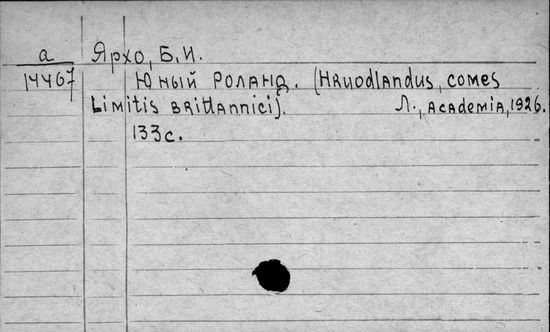 a Ярхо, Б.И.
14467 Юный Роланд. (Hruodlandus, comes
Limitis Brittannici).	Л., Academia, 1926.
133с.